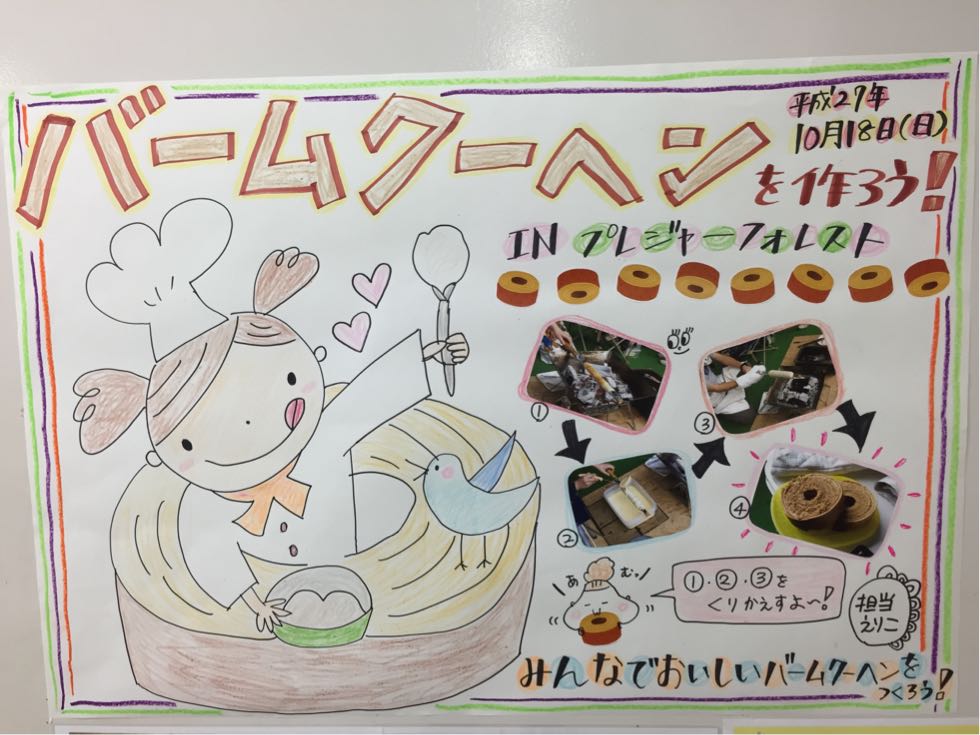 平成27年
10月18日(日)
バームクーヘン
を作ろう!
IN プレジャーフォレスト
①
③
②
④
あ むっ
①・②・③を
くりかえすよ〜!
担当
えりこ
みんなでおいしいバームクーヘンを
つくろう!